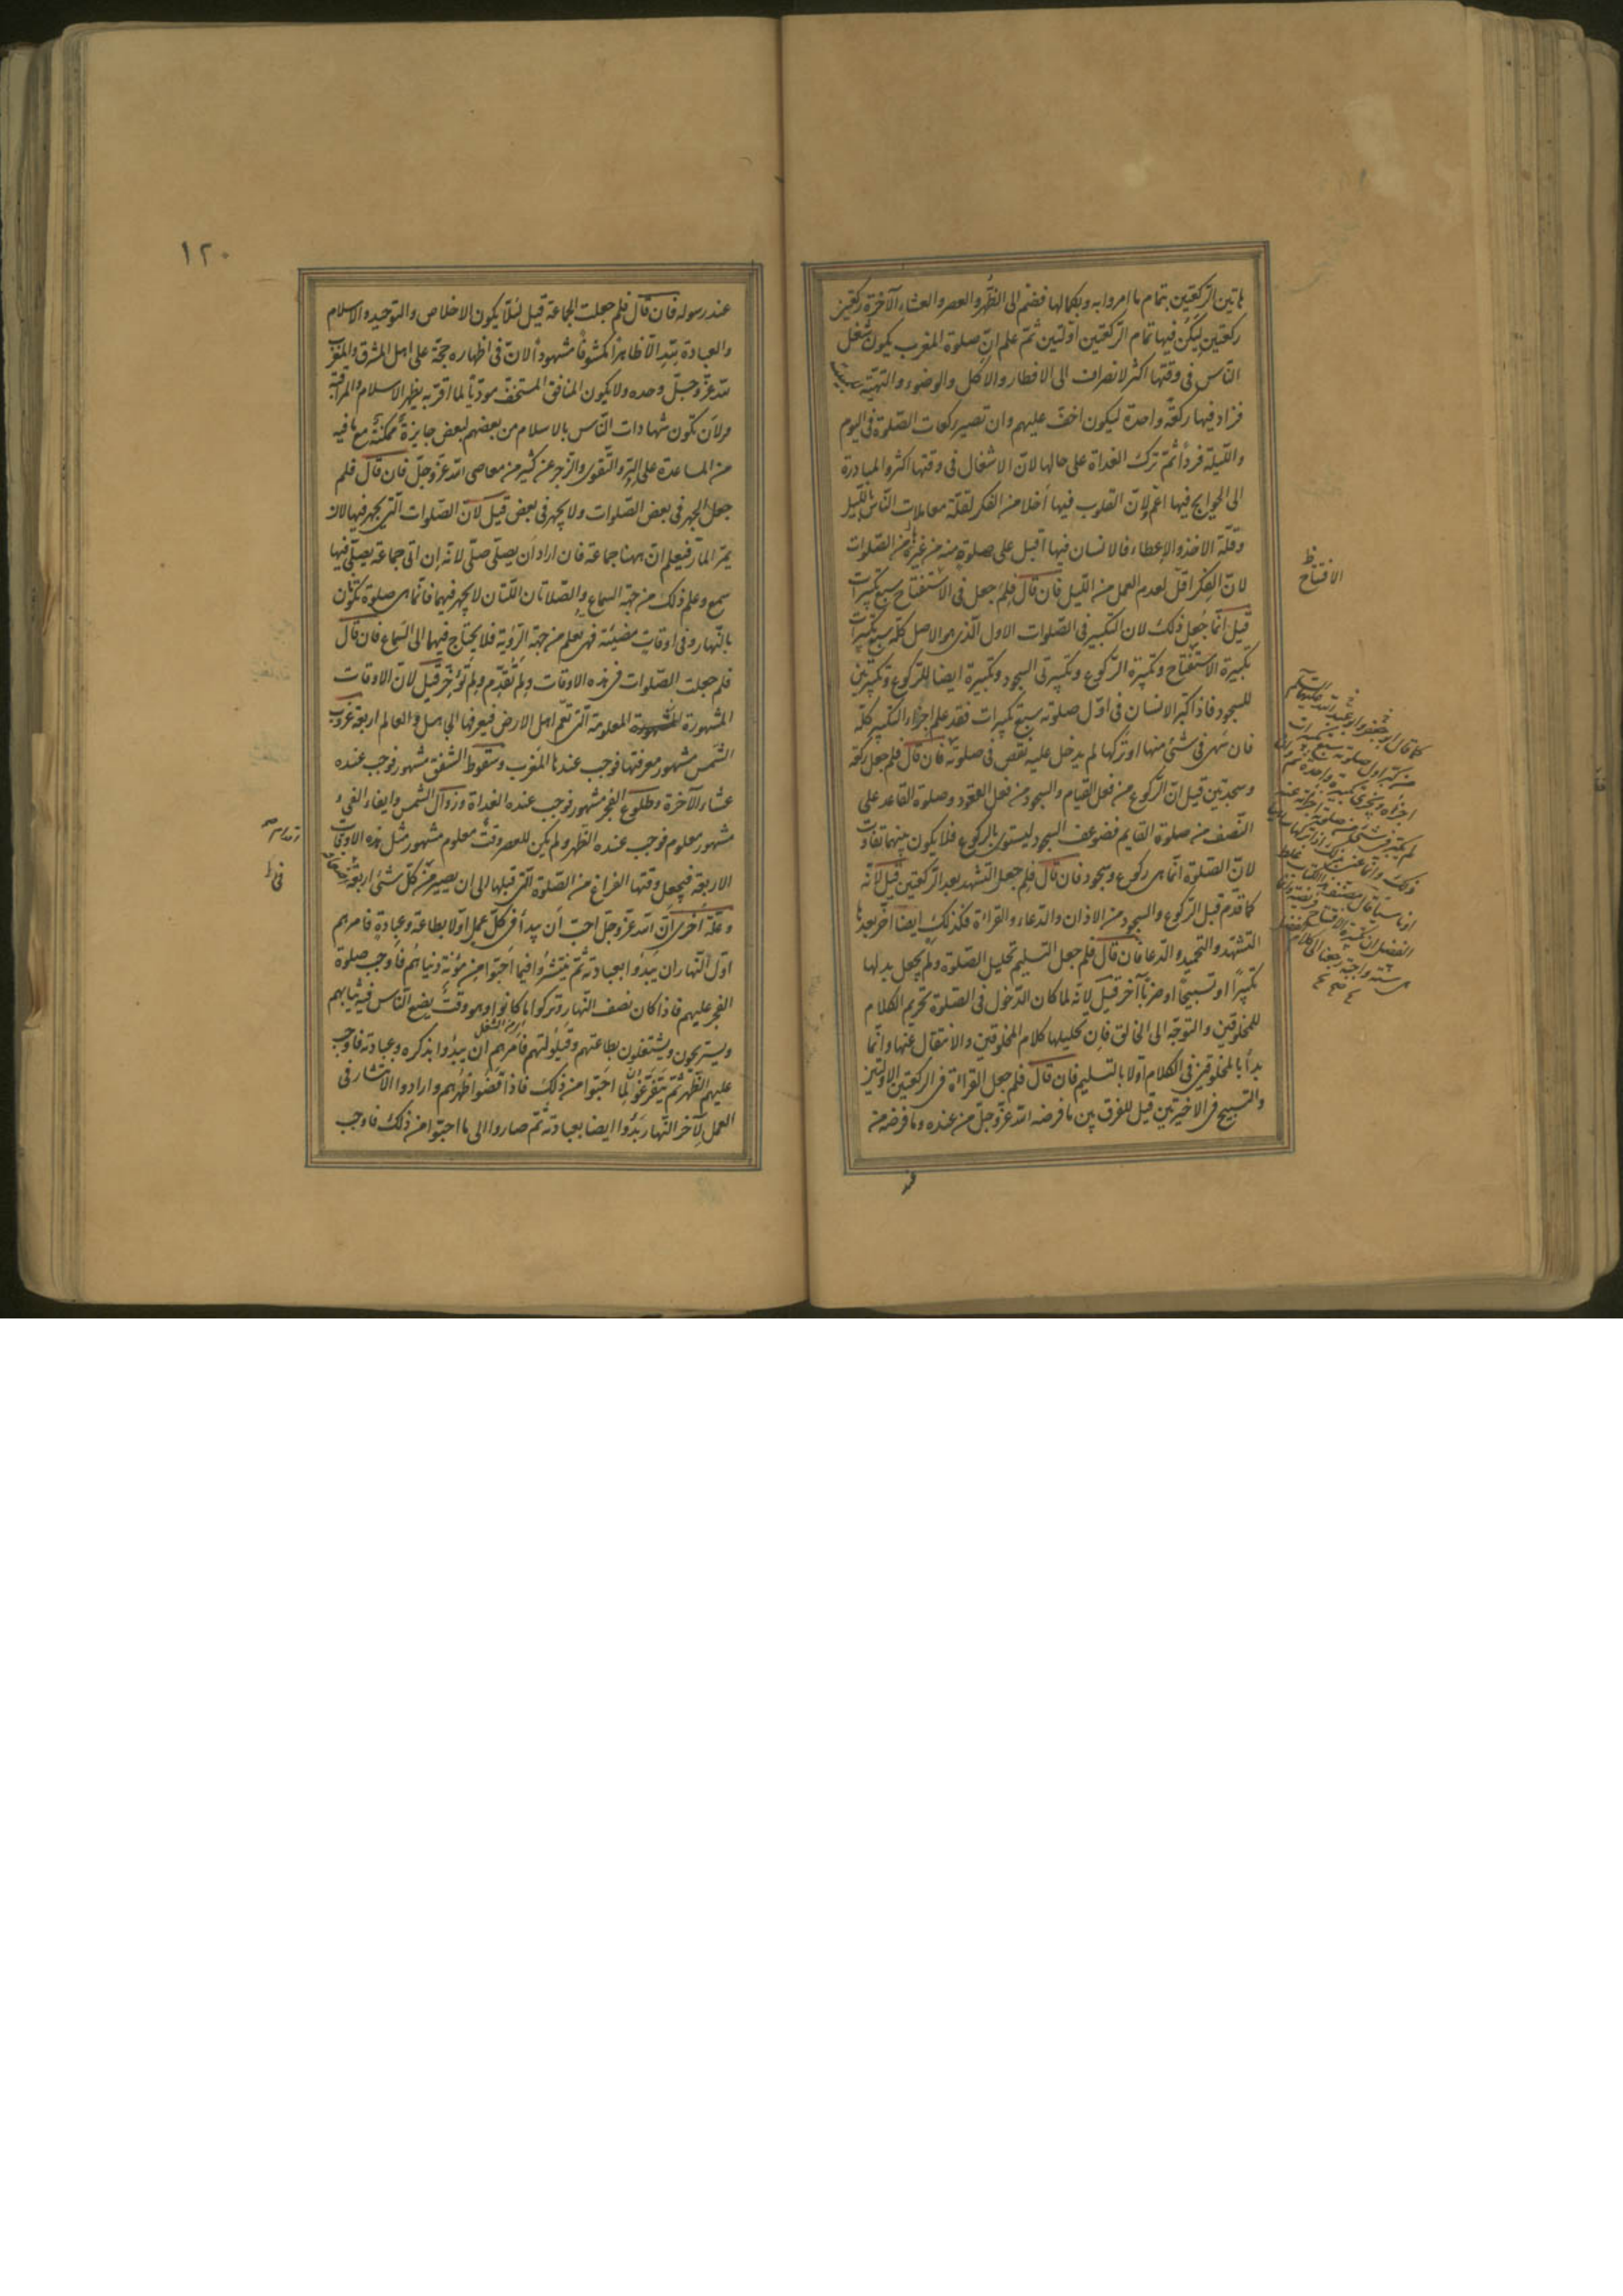 هاتين الركعتين بتمام ما امروا به وبكمالها فضم الى الظّهر والعصر والعشاء الآخرة ركعتين
ركعتين ليكن فيها تمام الركعتين اوّلتين ثمّ علم انّ صلوة المغرب يكون شغل
النّاس فى وقتها اكثر لانصراف الى الافطار والاكل والوضوء والتهيّة
فزاد فيها ركعة واحدة ليكون اخفّ عليهم وان تصير ركعات الصّلوة فى اليوم
واللّيلة فرداً ثمّ ترك الغداة على حالها لانّ الاشغال فى وقتها اكثر والمبادرة
الى الحوايج فيها اعمّ ولانّ القلوب فيها أخلا من الفكر لقلّة معاملات النّاس باللّيل
وقلّة الاخذ والإعطاء فالانسان فيها أقبل على صلوته منه من غيرها من الصّلوات
لانّ الفكر اقلّ لعدم العمل من اللّيل فان قال فلم جعل فى الاستفتاح سبع تكبيرات
قيل انّما جعل ذلك لان التكبير فى الصّلوات الاول الّذى هو الاصل كلّه سبع تكبيرات
تكبيرة الاستفتاح وتكبيرة الرّكوع وتكبيرتى السجود وتكبيرة ايضا للرّكوع وتكبيرتين
للسجود فاذا كبّر الانسان فى اوّل صلوته سبع تكبيرات فقد علم اجزاء التكبير كلّه
فان سهى فى شئ منها او تركها لم يدخل عليه نقص فى صلوته فان قال فلم جعل ركعة
وسجدتين قيل انّ الرّكوع من فعل القيام والسجود من فعل القعود وصلوة القاعد على
النّصف من صلوة القايم فضوعف السجود ليستوى بالركوع فلا يكون بينهما تفاوت
لانّ الصّلوة انّما هى ركوع وسجود فان قال فلم جعل التشهد بعد الركعتين قيل لانّه
كما قدّم قبل الرّكوع والسجود من الاذان والدّعاء والقراءة فكذلك ايضا أخّر بعدها
التشهّد والتحميد والدّعا فان قال فلم جعل التسليم تحليل الصّلوة ولم يجعل بدلها
تكبيرًا او تسبيحًا او ضربًا آخر قيل لانّه لما كان الدّخول فى الصّلوة تحريم الكلام
للمخلوقين والتوجّه الى الخالق فان تحليلها كلام المخلوقين والانتقال عنها وانّما
بدأ بالمخلوقين فى الكلام اوّلا بالتسليم فان قال فلم جعل القراءة فى الركعتين الاوّلتين
والتسبيح فى الاخيرتين قيل للفرق بين ما فرضه الله عزّوجلّ من عنده وما فرضه من
الافتتاح ظ
كما قال ابو جعفر وابو عبد الله عليهما السلام
من كبّر اول صلوته سبع تكبيرات
١٢٠
عند رسوله فان قال فلم جعلت الجماعة قيل لئلّا يكون الاخلاص والتوحيد والاسلام
والعبادة لله الّا ظاهرًا مكشوفًا مشهوداً لانّ فى اظهاره حجّة على اهل المشرق والمغرب
لله عزّ وجلّ وحده ولا يكون المنافق المستخف مودّياً لما اقرّ به بظهر الاسلام والمراقبة
ولان تكون شهادات النّاس بالاسلام من بعضهم لبعض جايزة ممكنة مع ما فيه
من المساعدة على البرّ والتّقوى والزّجر عن كثير من معاصى الله عزّوجلّ فان قال فلم
جعل الجهر فى بعض الصّلوات ولا يجهر فى بعض قيل لان الصّلوات الّتى يجهر فيها
يمرّ المارّ فيعلم انّ ههنا جماعة فان اراد ان يصلّى صلّى لانّه إن اتى جماعة يصلّى فيها
سمع وعلم ذلك من جهة السماع والصّلاتان اللّتان لا يجهر فيهما فانّما هى صلوة تكون
بالنّهار وفى اوقات مضيئة فهى تعلم من جهة الرّؤية فلا يحتاج فيهما الى السّماع فان قال
فلم جعلت الصّلوات فى هذه الاوقات ولم تقدّم ولم تؤخّر قيل لانّ الاوقات
المشهورة المعلومة الّتى تعمّ اهل الارض فيعرفها الجاهل والعالم اربعة غروب
الشّمس مشهور معرفتها فوجب عندها المغرب وسقوط الشّفق مشهور فوجب عنده
عشاء الآخرة وطلوع الفجر مشهور فوجب عنده الغداة وزوال الشمس وايفاء الفئ
مشهور معلوم فوجب عنده الظهر ولم يكن للعصر وقت معلوم مشهور مثل هذه الاوقات
الاربعة فيجعل وقتها الفراغ من الصّلوة الّتى قبلها الى ان يصير من كلّ شئ اربعة
وعلّة أخرى انّ الله عزّوجل احبّ أن يبدأ فى كلّ عمل اوّلا بطاعة وعبادة فامرهم
اوّل النّهار ان يبدؤا بعبادته ثمّ ينتشروا فيما احبّوا من مؤنة دنياهم فاوجب صلوة
الفجر عليهم فاذا كان نصف النّهار وتركوا ما كانوا وهو وقت يضع النّاس فيه ثيابهم
ويستريحون ويشتغلون بطاعتهم وقيلولتهم فامرهم ان يبدؤا بذكره وعبادته فاوجب
عليهم الظّهر ثمّ يتفرّغوا لما احبّوا من ذلك فاذا قضوا ظهرهم وارادوا الانتشار فى
العمل لآخر النّهار بدؤا ايضا بعبادته ثمّ صاروا الى ما احبّوا من ذلك فاوجب